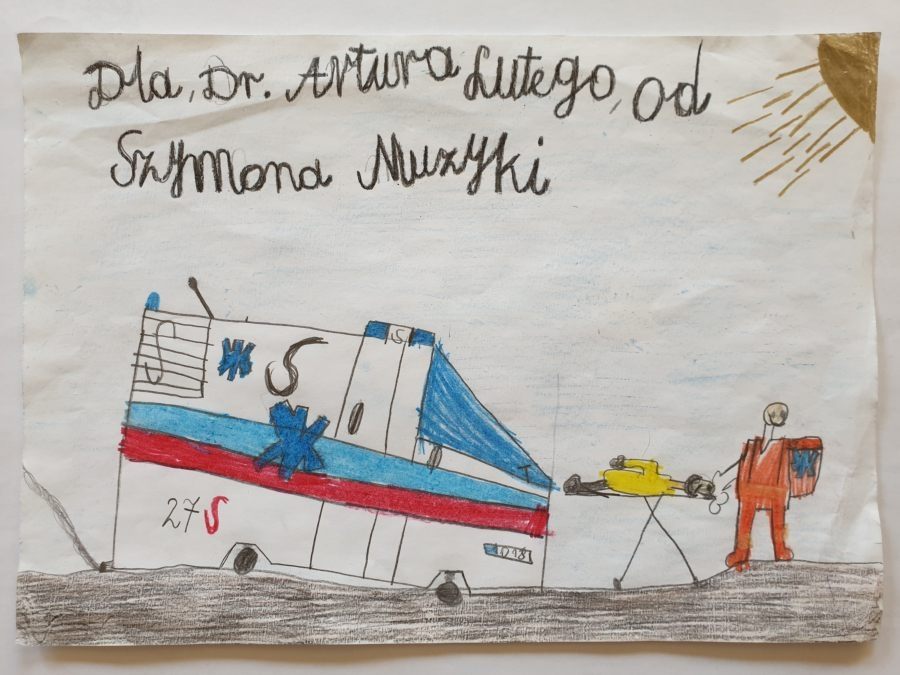 Dla, Dr. Artura Lutego, od
Szymona Muzyki
S
S
S
27S